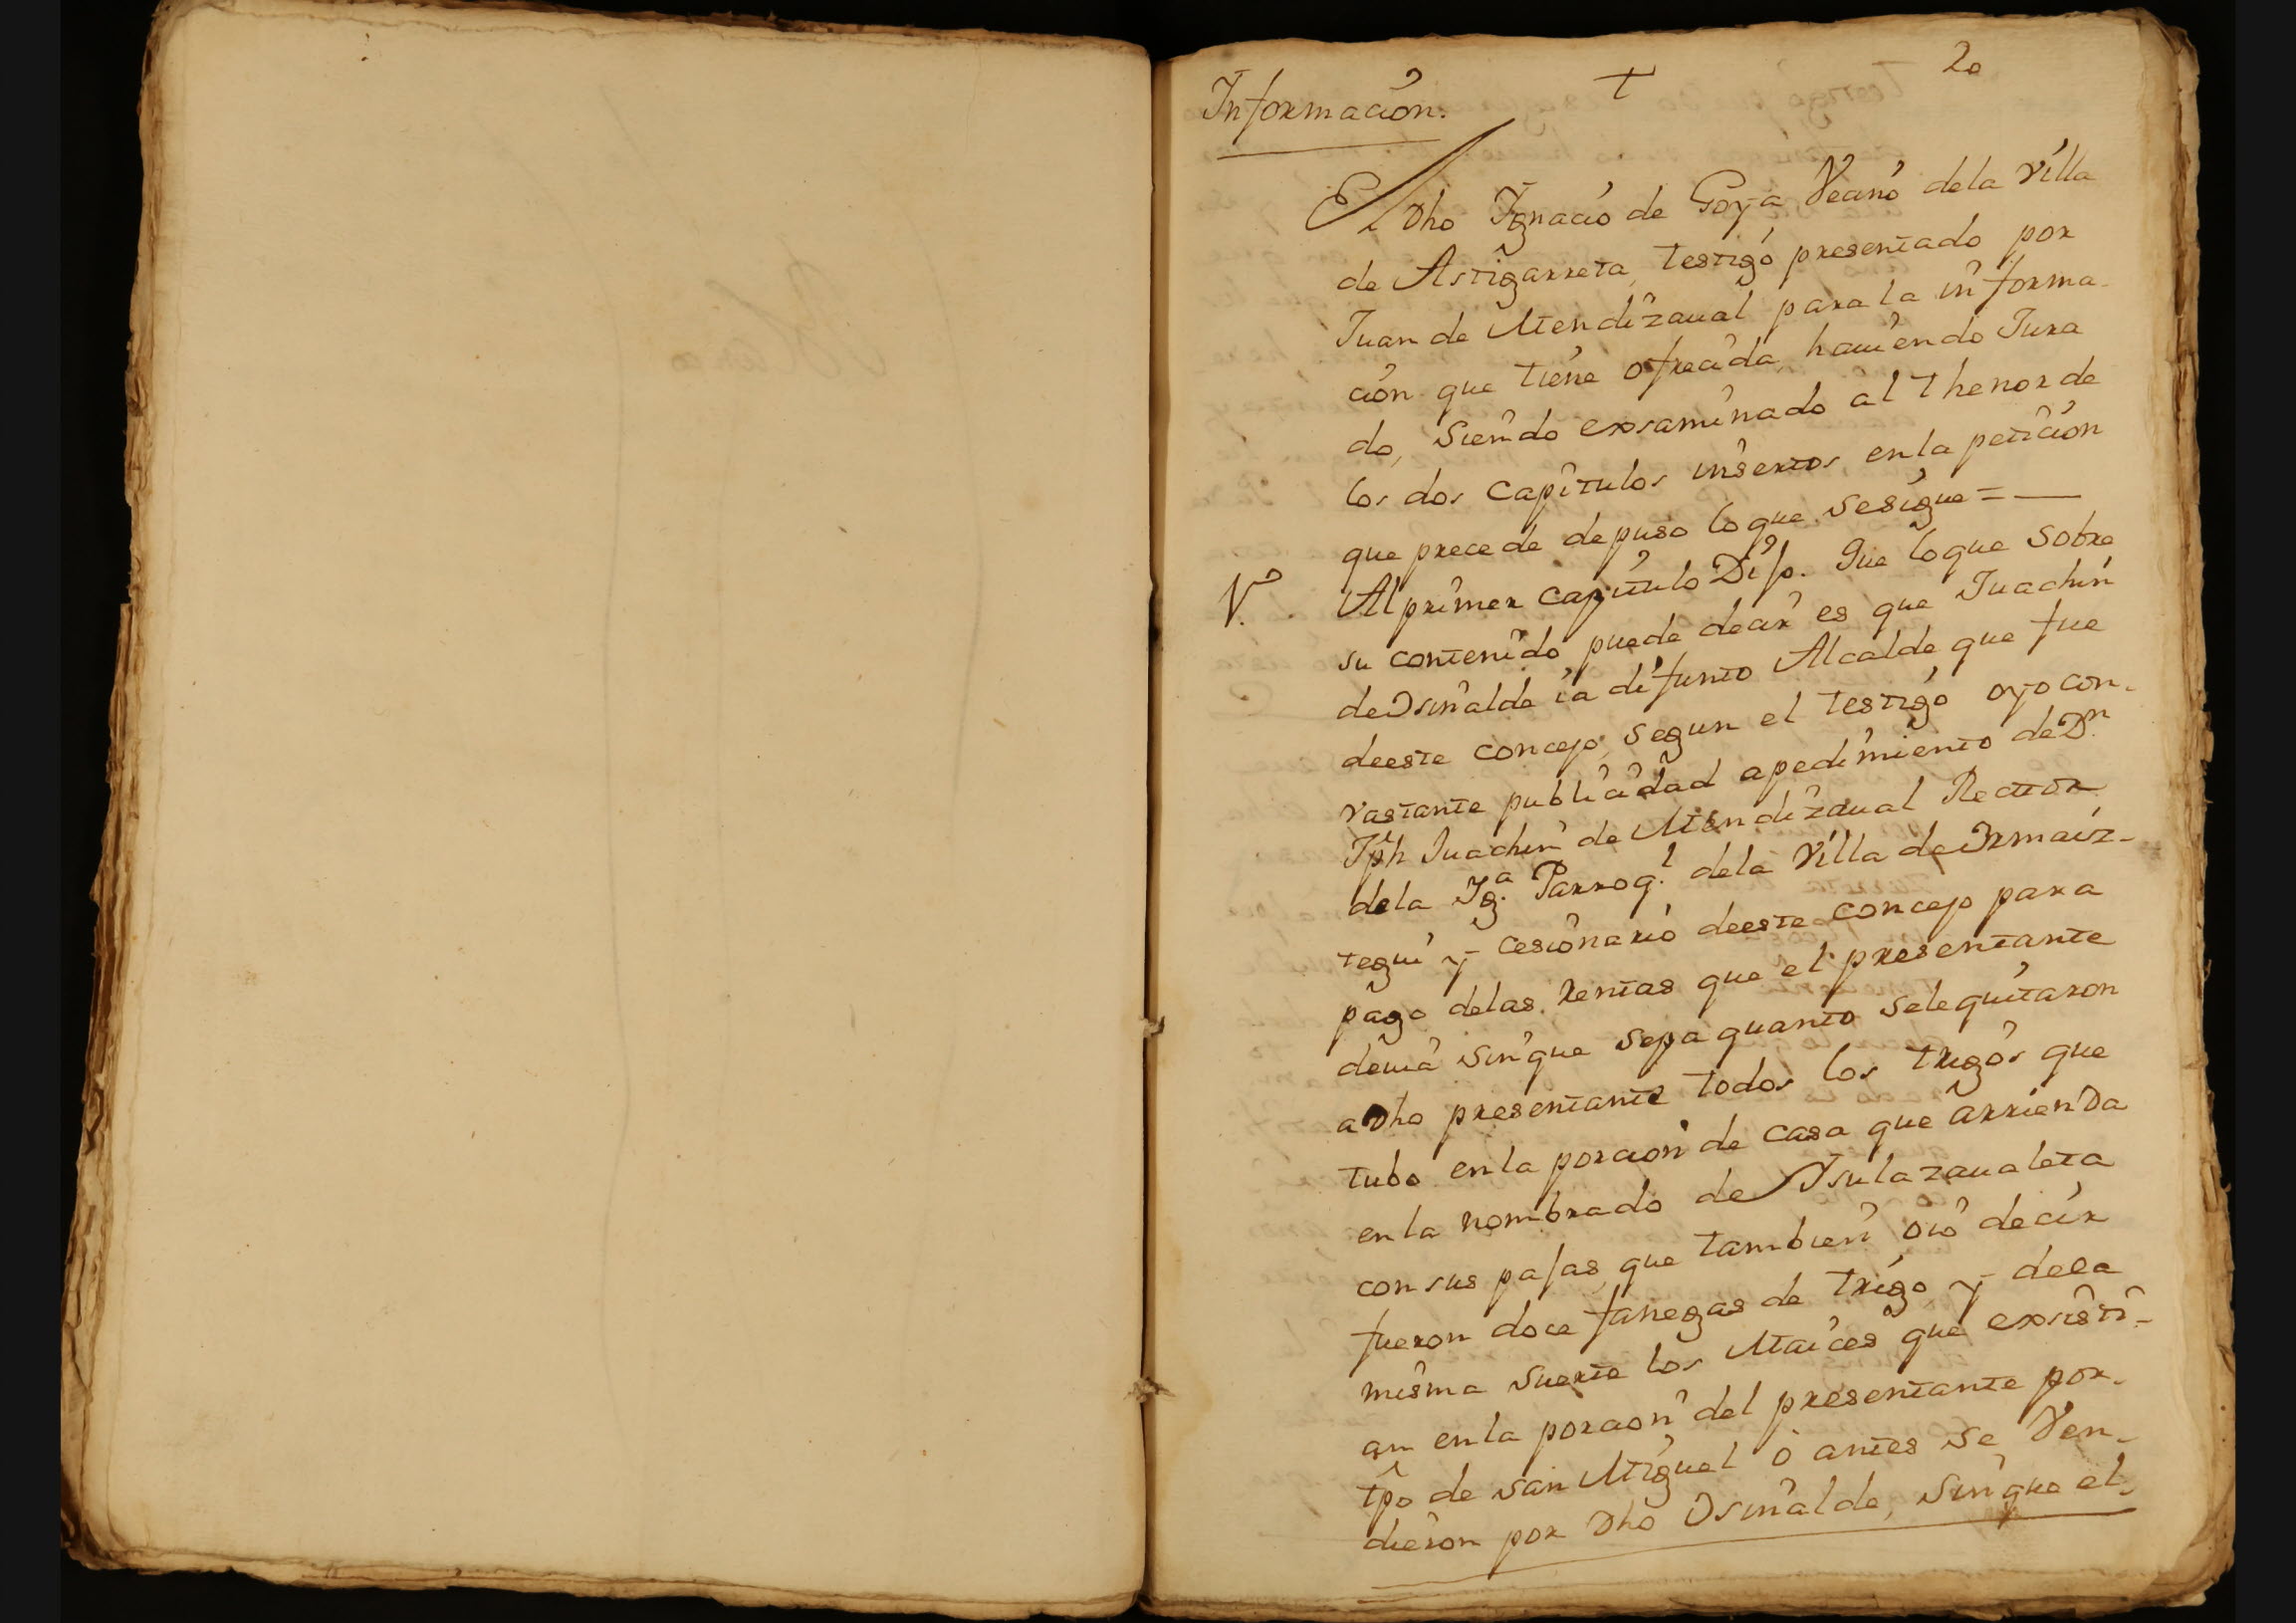 Informaciòn.
+
20
El Dho Ygnacio de Goya Vecino dela Villa
de Astigarreta, testigo presentado por
Juan de Mendizaual para la informa-
cion que tiene ofrecida, hauiendo Jura
do, siendo exsaminado al thenor de
los dos capitulos insertos, en la peticion
que precede depuso lo que sesigue = —
1º. Al primer capitulo Dijo. Que loque sobre
su contenido puede decir es que Juachin
de Osinalde ia difunto Alcalde que fue
deeste concejo, segun el testigo oyo con-
vastante publicidad apedimiento de Dn.
Jph Juachin de Mendizaual Rector
dela Yga. Parrogl. dela Villa de Ormaiz-
tegui y cesionario deeste concejo para
pago delas Rentas que el presentante
deuia sinque sepa quanto sele quitaron
a Dho presentante todos los trigos que
tubo en la porcion de casa que arrienda
en la nombrado de Ysulazaualeta
con sus pajas, que tambien oio decir
fueron doce fanegas de trigo y dela
misma suerte los Maices que exsisti-
an en la porcion del presentante por-
tpo de san Miguel ò antes se Ven-
dieron por Dho Osinalde, sinque el-